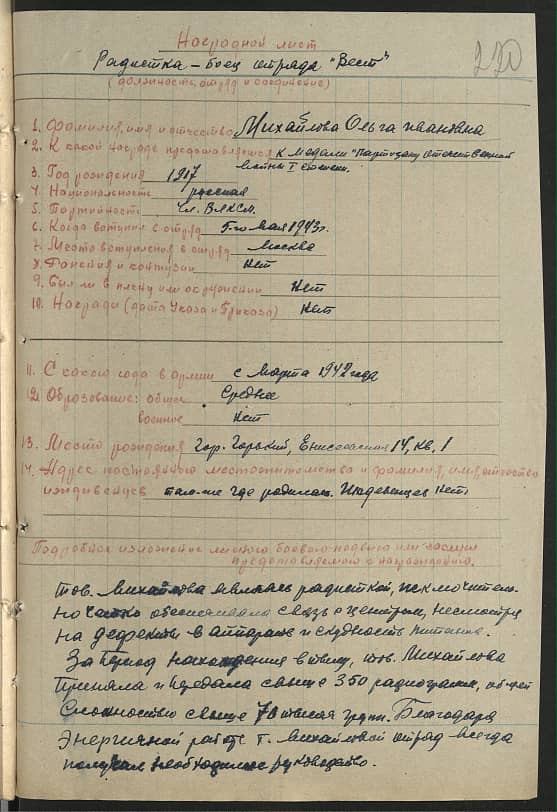 220
Наградной лист
Радистка – боец отряда "Вест"
(должность, отряд и соединение)
1. Фамилия, имя и отчество Михайлова Ольга Ивановна
2. К какой награде представляется к медали "Партизану отечественной
войны I степени.
3. Год рождения 1917
4. Национальность русская
5. Партийность чл. ВЛКСМ.
6. Когда вступил в отряд 5-го мая 1943г.
7. Место вступления в отряд Москва
8. Ранения и контузии нет
9. Был ли в плену или окружении нет
10. Награды (дата Указа и Приказа) нет
11. С какого года в армии с марта 1942 года
12. Образование: общее среднее
военное нет
13. Место рождения гор. Горький, 14, кв. 1
14. Адрес постоянного местожительства и фамилия, имя, отчество
иждивенцев там-же где родилась. Иждевенцев нет.
Подробное изложение личного боевого подвига или заслуги
представляемого к награждению.
Тов. Михайлова являясь радисткой, исключитель-
но четко обеспечивала связь с центром, несмотря
на дефекты в аппарате и скудность питания.
За период нахождения в тылу, тов. Михайлова
приняла и передала свыше 350 радиограмм, общей
сложностью свыше групп. Благодаря
энергичной работе т. Михайловой отряд всегда
получал необходимое руководство.